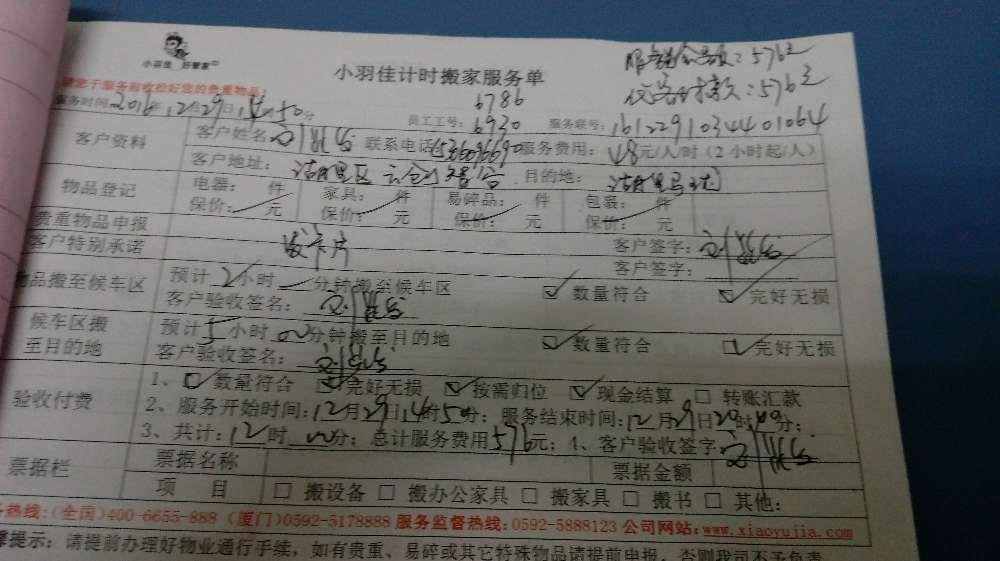 小羽佳 好管家
小羽佳计时搬家服务单
服务总金额：576元
优惠后应付款：576元
请您于服务前收捡好您的贵重物品：
6786
服务时间：2016年12月29日14时50分 员工工号：6930 服务联号：1612291034401064
客户资料 客户姓名： 联系电话 服务费用：48元/人/时（2小时起/人）
客户地址：湖里区 目的地：湖里
物品登记 电器： 件 家具： 件 易碎品： 件 包装： 件
保价： 元 保价： 元 保价： 元 保价： 元
贵重物品申报 客户签字：
客户特别承诺 发卡片 客户签字：
物品搬至候车区 预计2小时 分钟搬至候车区 ☑ 数量符合 ☑ 完好无损
客户验收签名：
候车区搬至目的地 预计5小时00分钟搬至目的地 ☑ 数量符合 ☑ 完好无损
客户验收签名：
验收付费 1、☑ 数量符合 ☑ 完好无损 ☑ 按需归位 ☑ 现金结算 □ 转账汇款
2、服务开始时间：12月29日14时50分；服务结束时间：12月29日 时 分；
3、共计：12时00分；总计服务费用576元；4、客户验收签字
票据栏 票据名称 票据金额
项 目 □ 搬设备 □ 搬办公家具 □ 搬家具 □ 搬书 □ 其他：
务热线：(全国)400-6655-888 (厦门)0592-5178888 服务监督热线：0592-5888123 公司网站：www.xiaoyujia.com
提示：请提前办理好物业通行手续，如有贵重、易碎或其它特殊物品请提前申报，否则我司不予负责